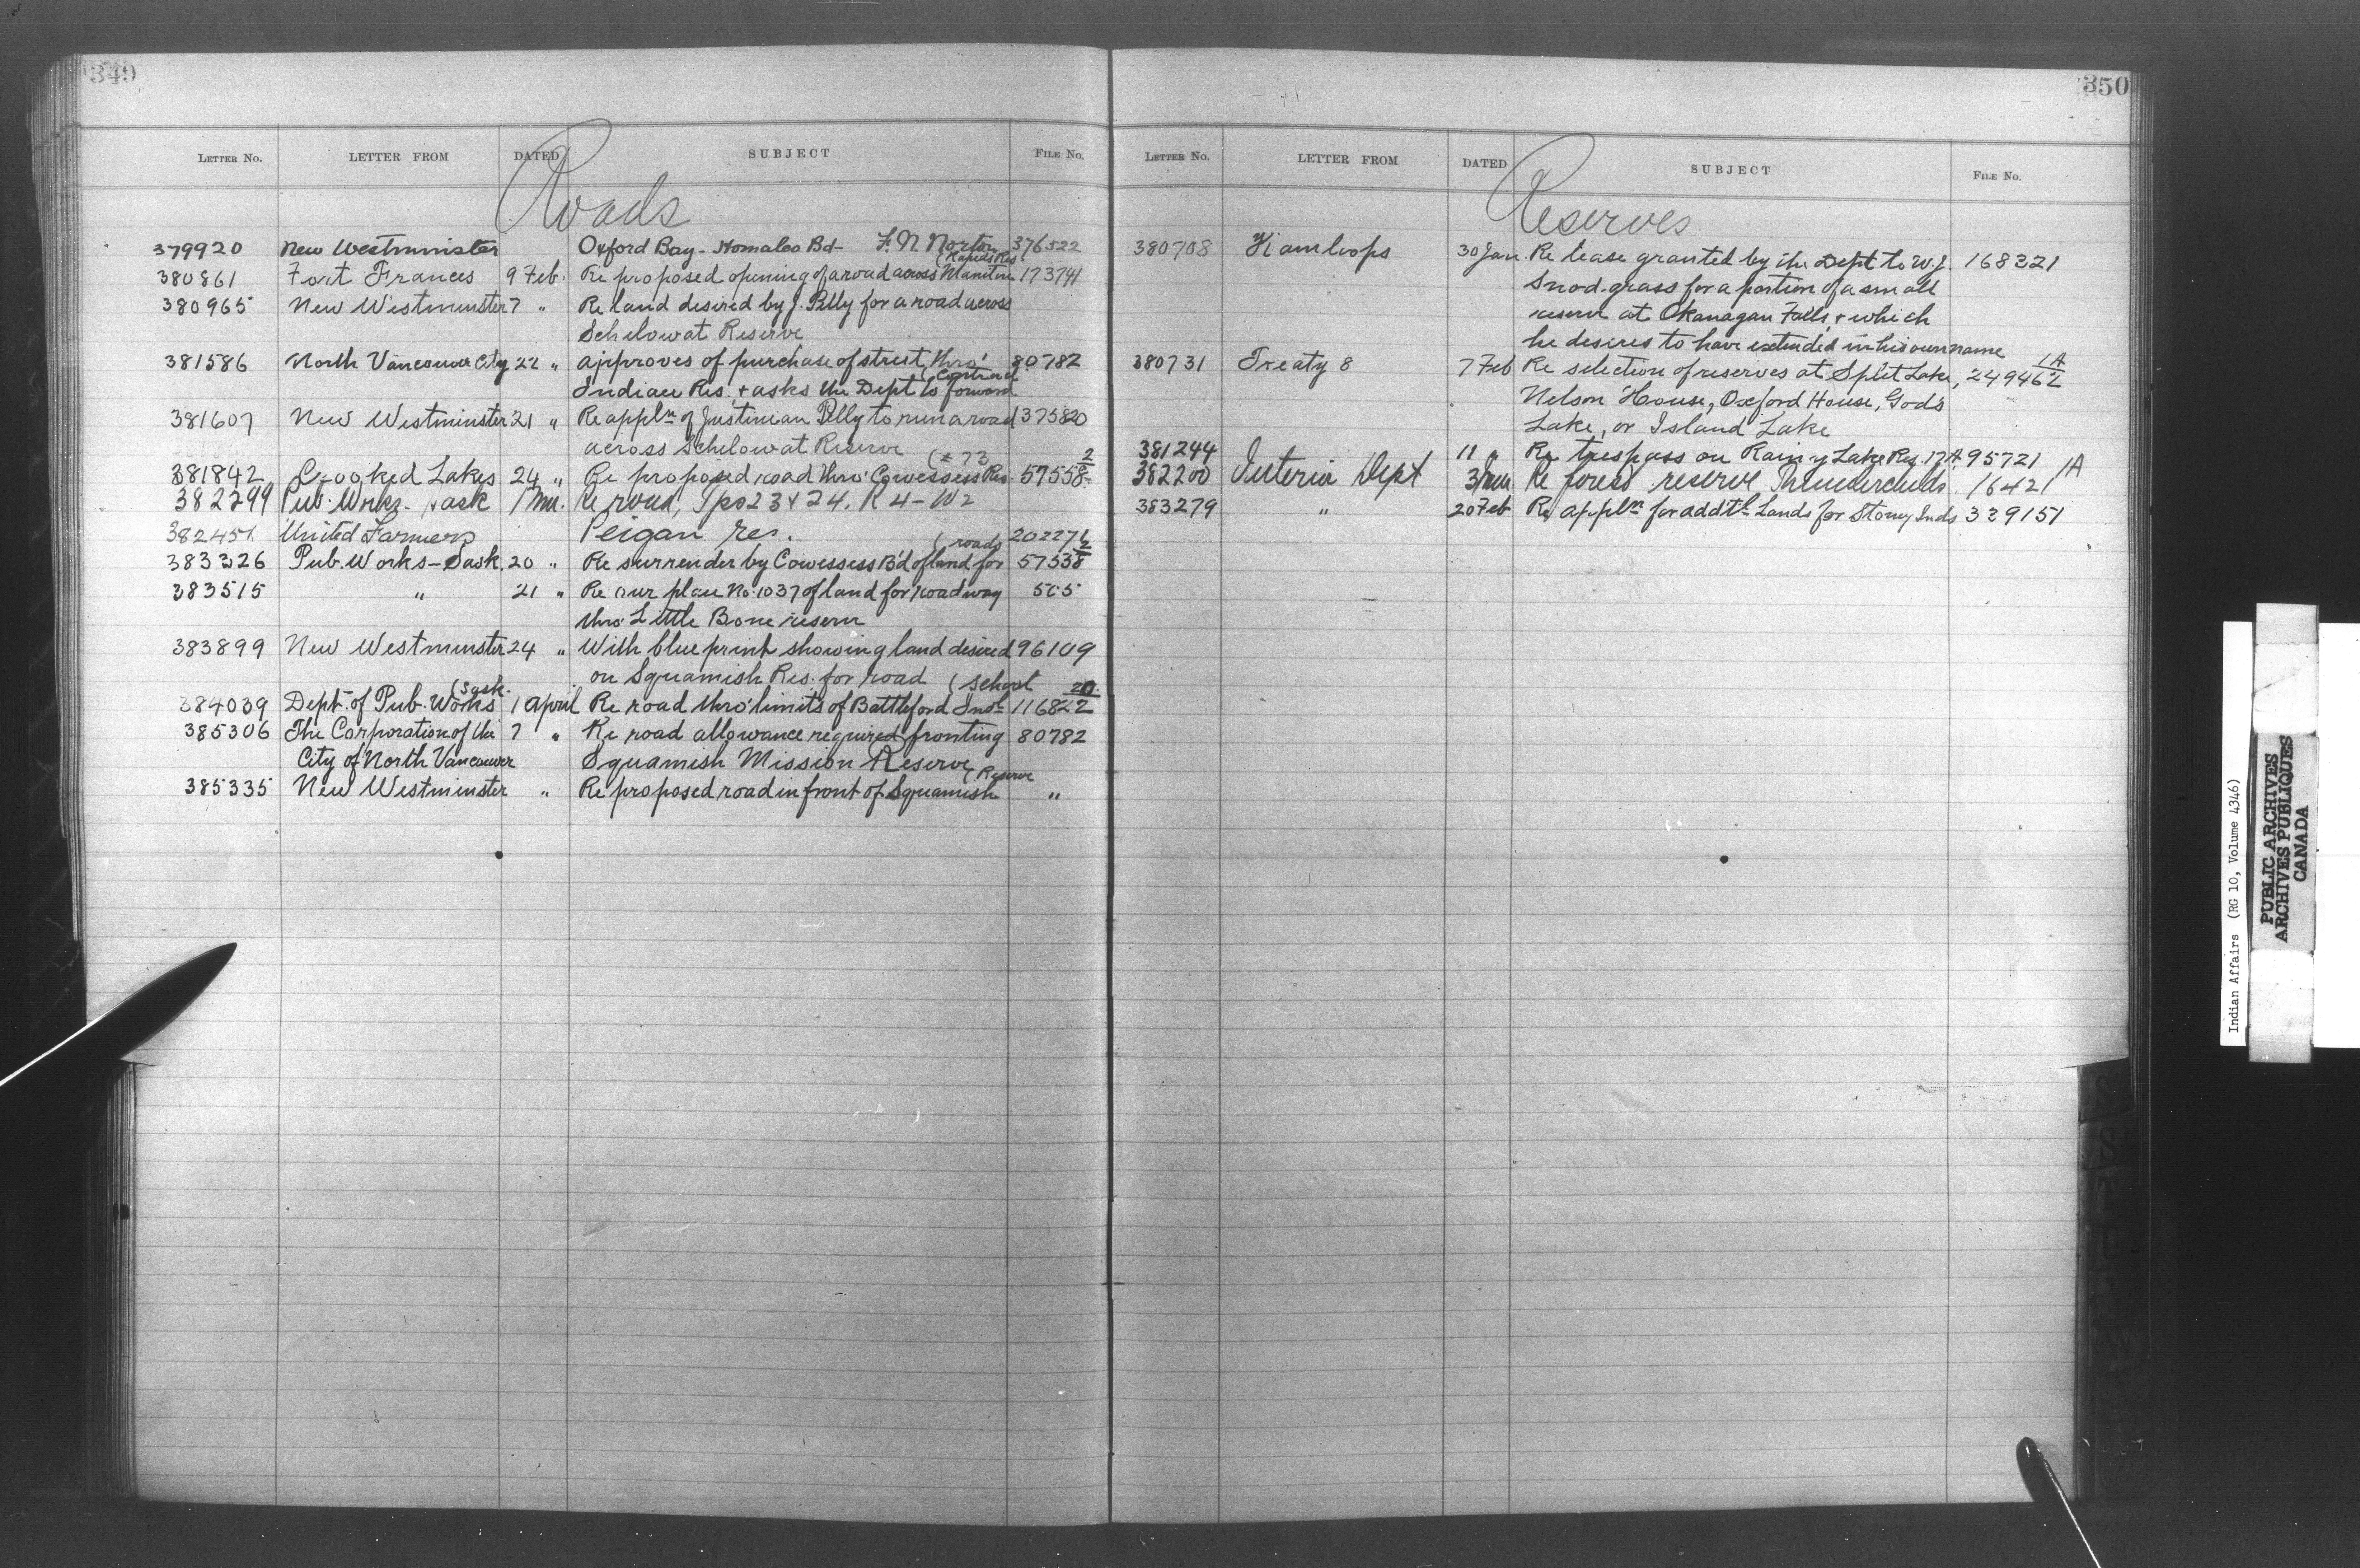 349
LETTER No. LETTER FROM DATED SUBJECT FILE No.
Roads
379920 New Westminster Oxford Bay - Homalco Bd - F. N. Norton 376522
(Rapids Res.
380861 Fort Frances 9 Feb. Re proposed opening of a road across Manitou 173741
380965 New Westminster 7 " Re land desired by J. Pelly for a road across
Schelowat Reserve
381586 North Vancouver City 22 " approves of purchase of street thro' 80782
Indian Res. + asks the Dept to forward Contract
381607 New Westminster 21 " Re appln of Justinian Pelly to run a road 375820
across Schelowat Reserve (# 73 2
381842 Crooked Lakes 24 " Re proposed road thro' Cowessess Res. 57558
382299 Pub. Works - Sask 1 Mar. Re road, Tps 23 & 24. R 4 - W2
382451 United Farmers Peigan res. 202271
(roads 2
383326 Pub. Works - Sask. 20 " Re surrender by Cowessess B'd of land for 57538
383515 " 21 " Re our plan No. 1037 of land for roadway 505
thro' Little Bone reserve
383899 New Westminster 24 " With blue print showing land desired 96109
on Squamish Res. for road (school 20
(Sask.
384039 Dept. of Pub. Works 1 April Re road thro' limits of Battleford Indl 116842
385306 The Corporation of the 7 " Re road allowance required fronting 80782
City of North Vancouver Squamish Mission Reserve
(Reserve
385335 New Westminster " Re proposed road in front of Squamish "
350
LETTER No. LETTER FROM DATED SUBJECT FILE No.
Reserves
380708 Kamloops 30 Jan. Re lease granted by the Dept to W. J. 168321
Snodgrass for a portion of a small
reserve at Okanagan Falls, + which
he desires to have extended in his own name
1A
380731 Treaty 8 7 Feb Re selection of reserves at Split Lake, 249462
Nelson House, Oxford House, God's
Lake, or Island Lake
381244 11 " Re trespass on Rainy Lake Res. 17A 95721
382200 Interior Dept 3 Mar. Re forest reserve Thunderchild's 16421 1A
383279 " 20 Feb Re appln for addtl Lands for Stony Inds 339151
Indian Affairs (RG 10, Volume 4346)
PUBLIC ARCHIVES
ARCHIVES PUBLIQUES
CANADA